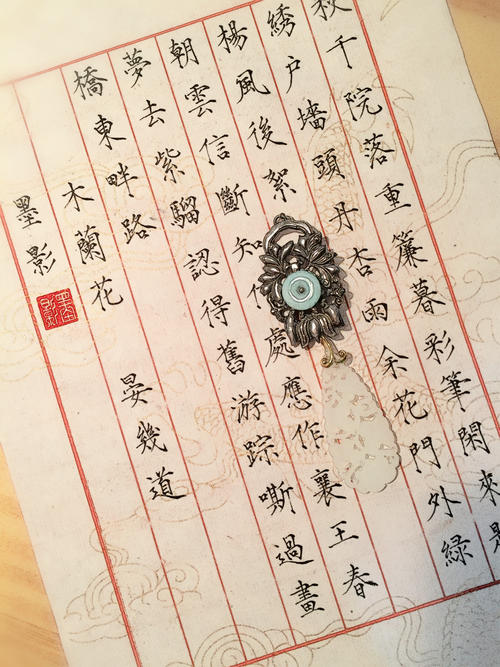 秋千院落重簾暮彩筆閑來
繡戶墻頭丹杏雨余花門外綠
楊風後絮
朝雲信斷知處應作襄王春
夢去紫騮認得舊游踪嘶過畫
橋東畔路
木蘭花 晏幾道
墨影
墨影